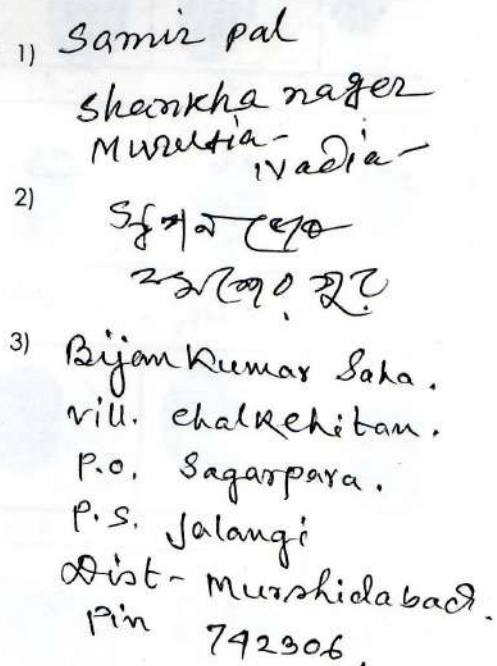 1) Samir pal
Shankha nager
Murutia -
Nadia -
2)
3) Bijan Kumar Saha.
vill. Chalkchitan.
P.O. Sagarpara.
P.S. Jalangi
Dist - Murshidabad.
Pin 742306.